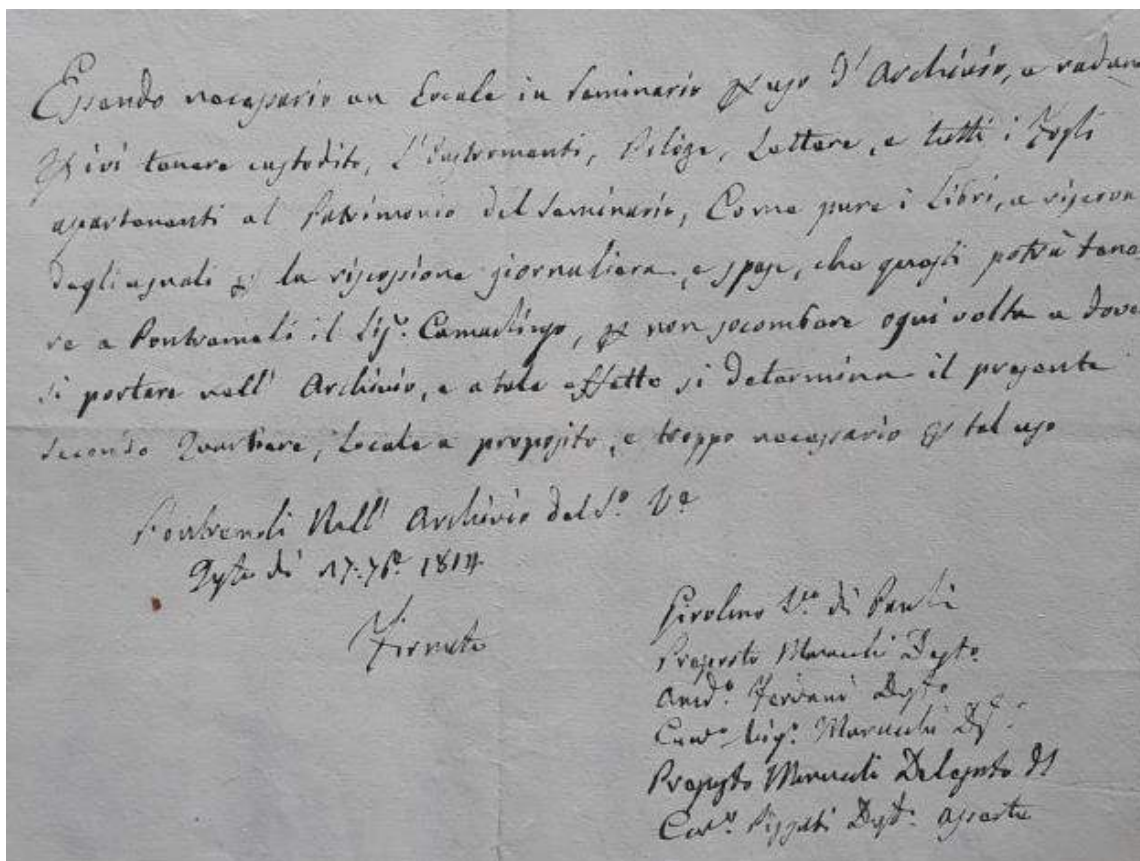 Essendo necessario un Locale in Seminario per uso d'Archivio, e radun
per ivi tenere custodito, L'Instromenti, Filòze, Lettere, e tutti i Fogli
apartenenti al Patrimonio del Seminario, Come pure i Libri, a riserva
degli uguali per la riscossione giornaliera, e spese, che questi potrà tene
re a Pontremoli il Sig.r Camarlingo, per non socombare ogni volta a dove
si portare nell' Archivio, e a tale effetto si determina il presente
secondo Quartiere, Locale a proposito, e troppo necessario per tal uso
Pontremoli Nell' Archivio del S.o V.o
Q.sto dì 17. 7bre 1814
Firmato
Girolmo V.o di Pont.li
Proposto Maraculi Dep.to
Ferrani Dep.to
Can.co Luig.i Maraculi Dep.
Proposto Maraculi Delegato
Can.co Pizzati Dep.to